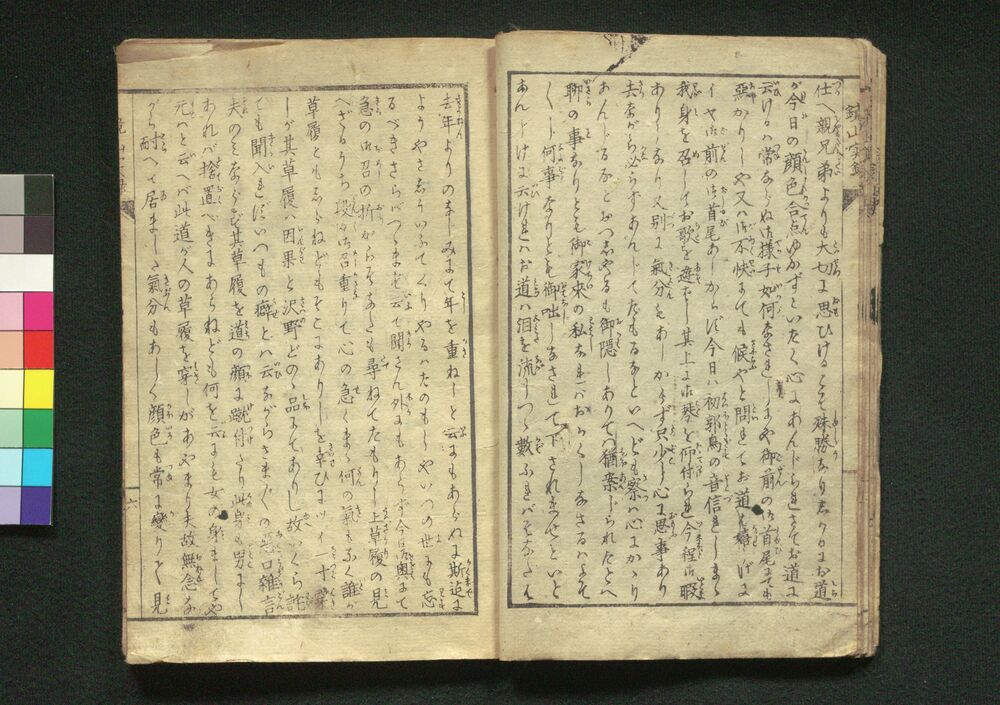 仕へ親兄弟よりも大切に思ひけるこそ殊勝なりしかるにお道
が今日の顔色合点ゆかずといたく心にあんじられさてお道に
云けるは常ならぬ御様子如何なされしにや御前の御首尾にても
悪かりしや又は御不快にても候やと問れてお道は嬉しげに
イヤ御前の御首尾あしからず今日は初郭鳥の音信れしまゝ
我身を召してお歌を遊ばし其上に御琴を仰付られ今程御暇
ありしなり又別に気分もあしからず只少々心に思事あり
去ながら必らずあんじてたもるなといへども察は心にかゝり
あんじるなとおつしやるも御隠しありては猶案じられたとへ
聊の事なりとも御家来の私なればおかくしなさるはよそ
〳〵しく何事なりとも御咄しなされて下されませといと
あんじけに云ければお道は泪を流しつゝ数ふればそなたも
去年よりのなじみにて年を重ねしと云にもあらぬに斯迄に
ようやさしういふてくりやるはたのもしやいつの世にも忘
るべきさらばつゝまず云て聞さん外にもあらず今日御奥にて
急の御召の折からそなたも尋ねてたもりし上草履の見
へざるうち段々御召重りて心の急くまゝ何の気もなく誰が
草履ともしらねどもそこにありしを幸ひにツイ一寸穿
しが其草履は因果と沢野どのゝ品にてありし故いくら詫
ても聞入れずいつもの癖とは云ながらさま〴〵の悪口雑言
夫のみならず其草履を道の顔に蹴付たり此身も男ならし
あれば捨置べきにあらねども何を云にも女の身ましてや
元はと云へば此道が人の草履を穿しがあやまり夫故無念な
がら耐へて居ましたが気分もあしく顔色も常に変りてぞ見
六